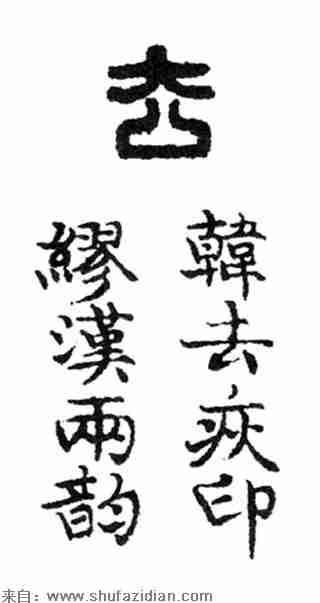 去
韓去疾印
繆漢兩韵
来自：www.shufazidian.com